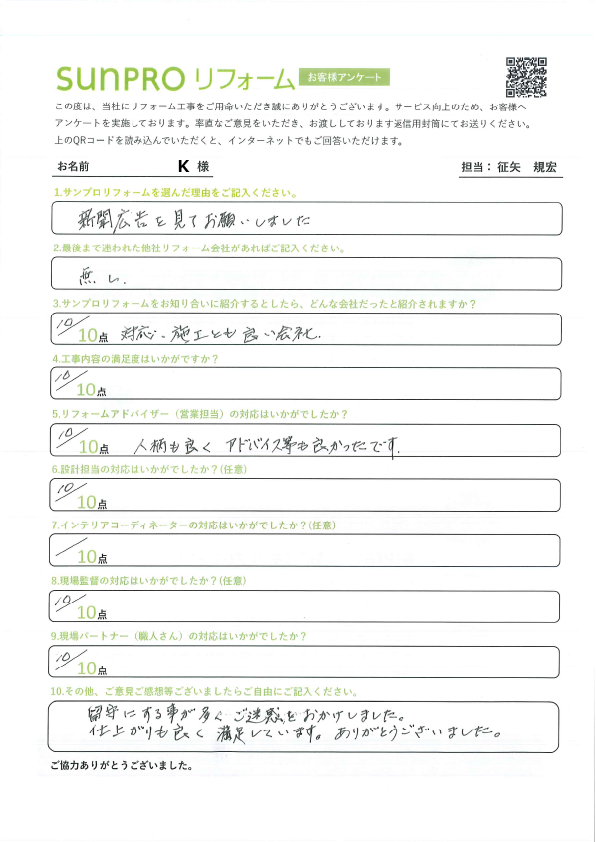 sunPRO リフォーム お客様アンケート
この度は、当社にリフォーム工事をご用命いただき誠にありがとうございます。サービス向上のため、お客様へ
アンケートを実施しております。率直なご意見をいただき、お渡ししております返信用封筒にてお送りください。
上のQRコードを読み込んでいただくと、インターネットでもご回答いただけます。
お名前 K 様 担当：征矢 規宏
1.サンプロリフォームを選んだ理由をご記入ください。
新聞広告を見てお願いしました
2.最後まで迷われた他社リフォーム会社があればご記入ください。
無し.
3.サンプロリフォームをお知り合いに紹介するとしたら、どんな会社だったと紹介されますか？
10/10点 対応、施工とも良い会社.
4.工事内容の満足度はいかがですか？
10/10点
5.リフォームアドバイザー（営業担当）の対応はいかがでしたか？
10/10点 人柄も良く アドバイス等も良かったです.
6.設計担当の対応はいかがでしたか？(任意)
10/10点
7.インテリアコーディネーターの対応はいかがでしたか？(任意)
/10点
8.現場監督の対応はいかがでしたか？(任意)
10/10点
9.現場パートナー（職人さん）の対応はいかがでしたか？
10/10点
10.その他、ご意見ご感想等ございましたらご自由にご記入ください。
留守にする事が多くご迷惑をおかけしました。
仕上がりも良く満足しています。ありがとうございました。
ご協力ありがとうございました。